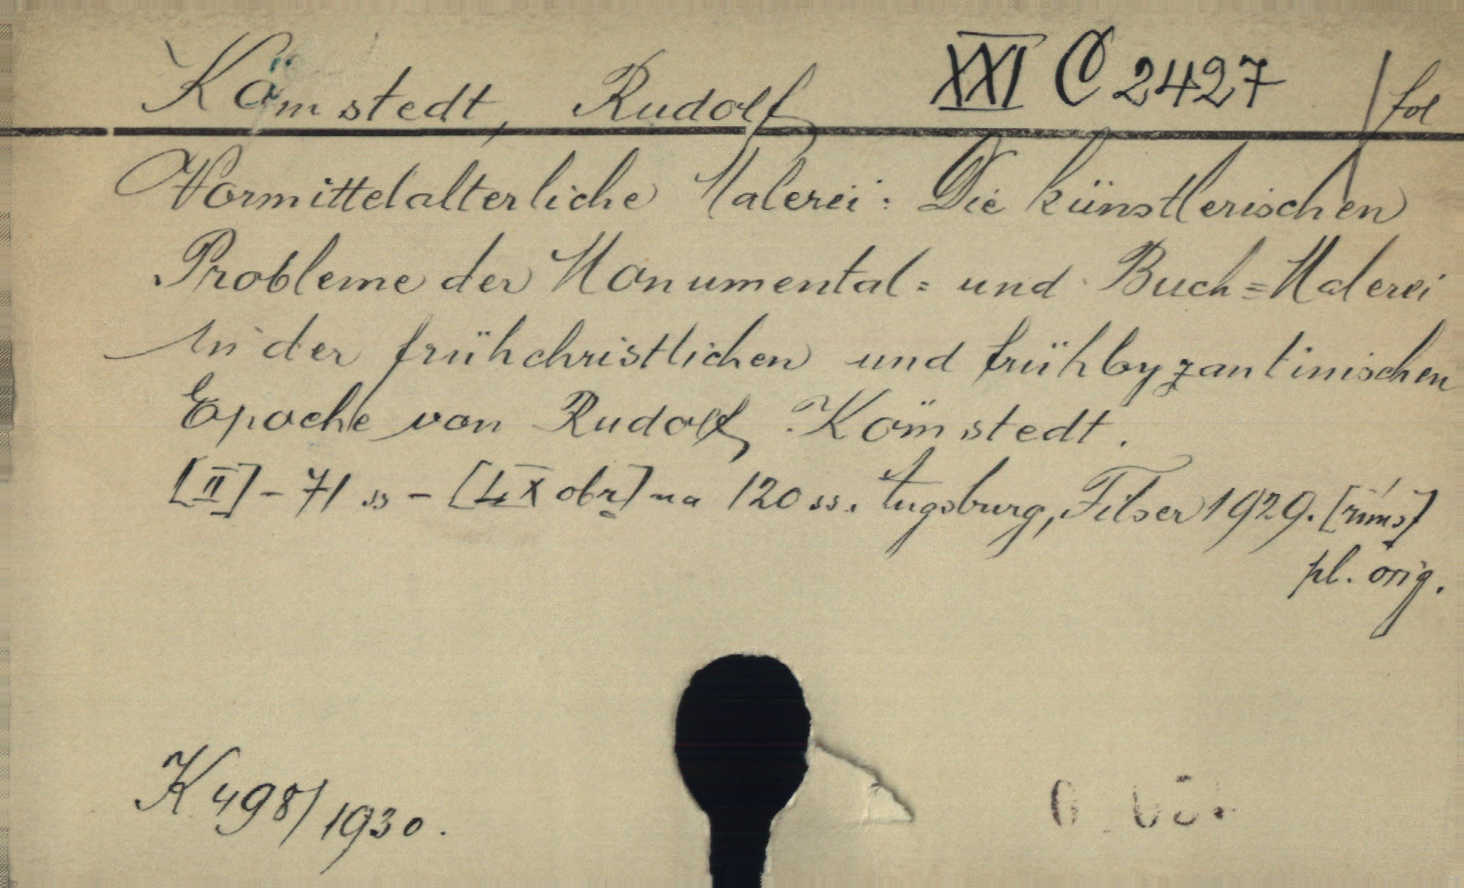 Kömstedt, Rudolf XXI C 2427 fol
Vormittelalterliche Malerei: Die künstlerischen
Probleme der Monumental= und Buch=Malerei
in der frühchristlichen und frühbyzantinischen
Epoche von Rudolf Kömstedt.
[II] - 71 ss - [LX obr] na 120 ss. Augsburg, Filser 1929. [rüms]
pl. orig.
K 498/1930.